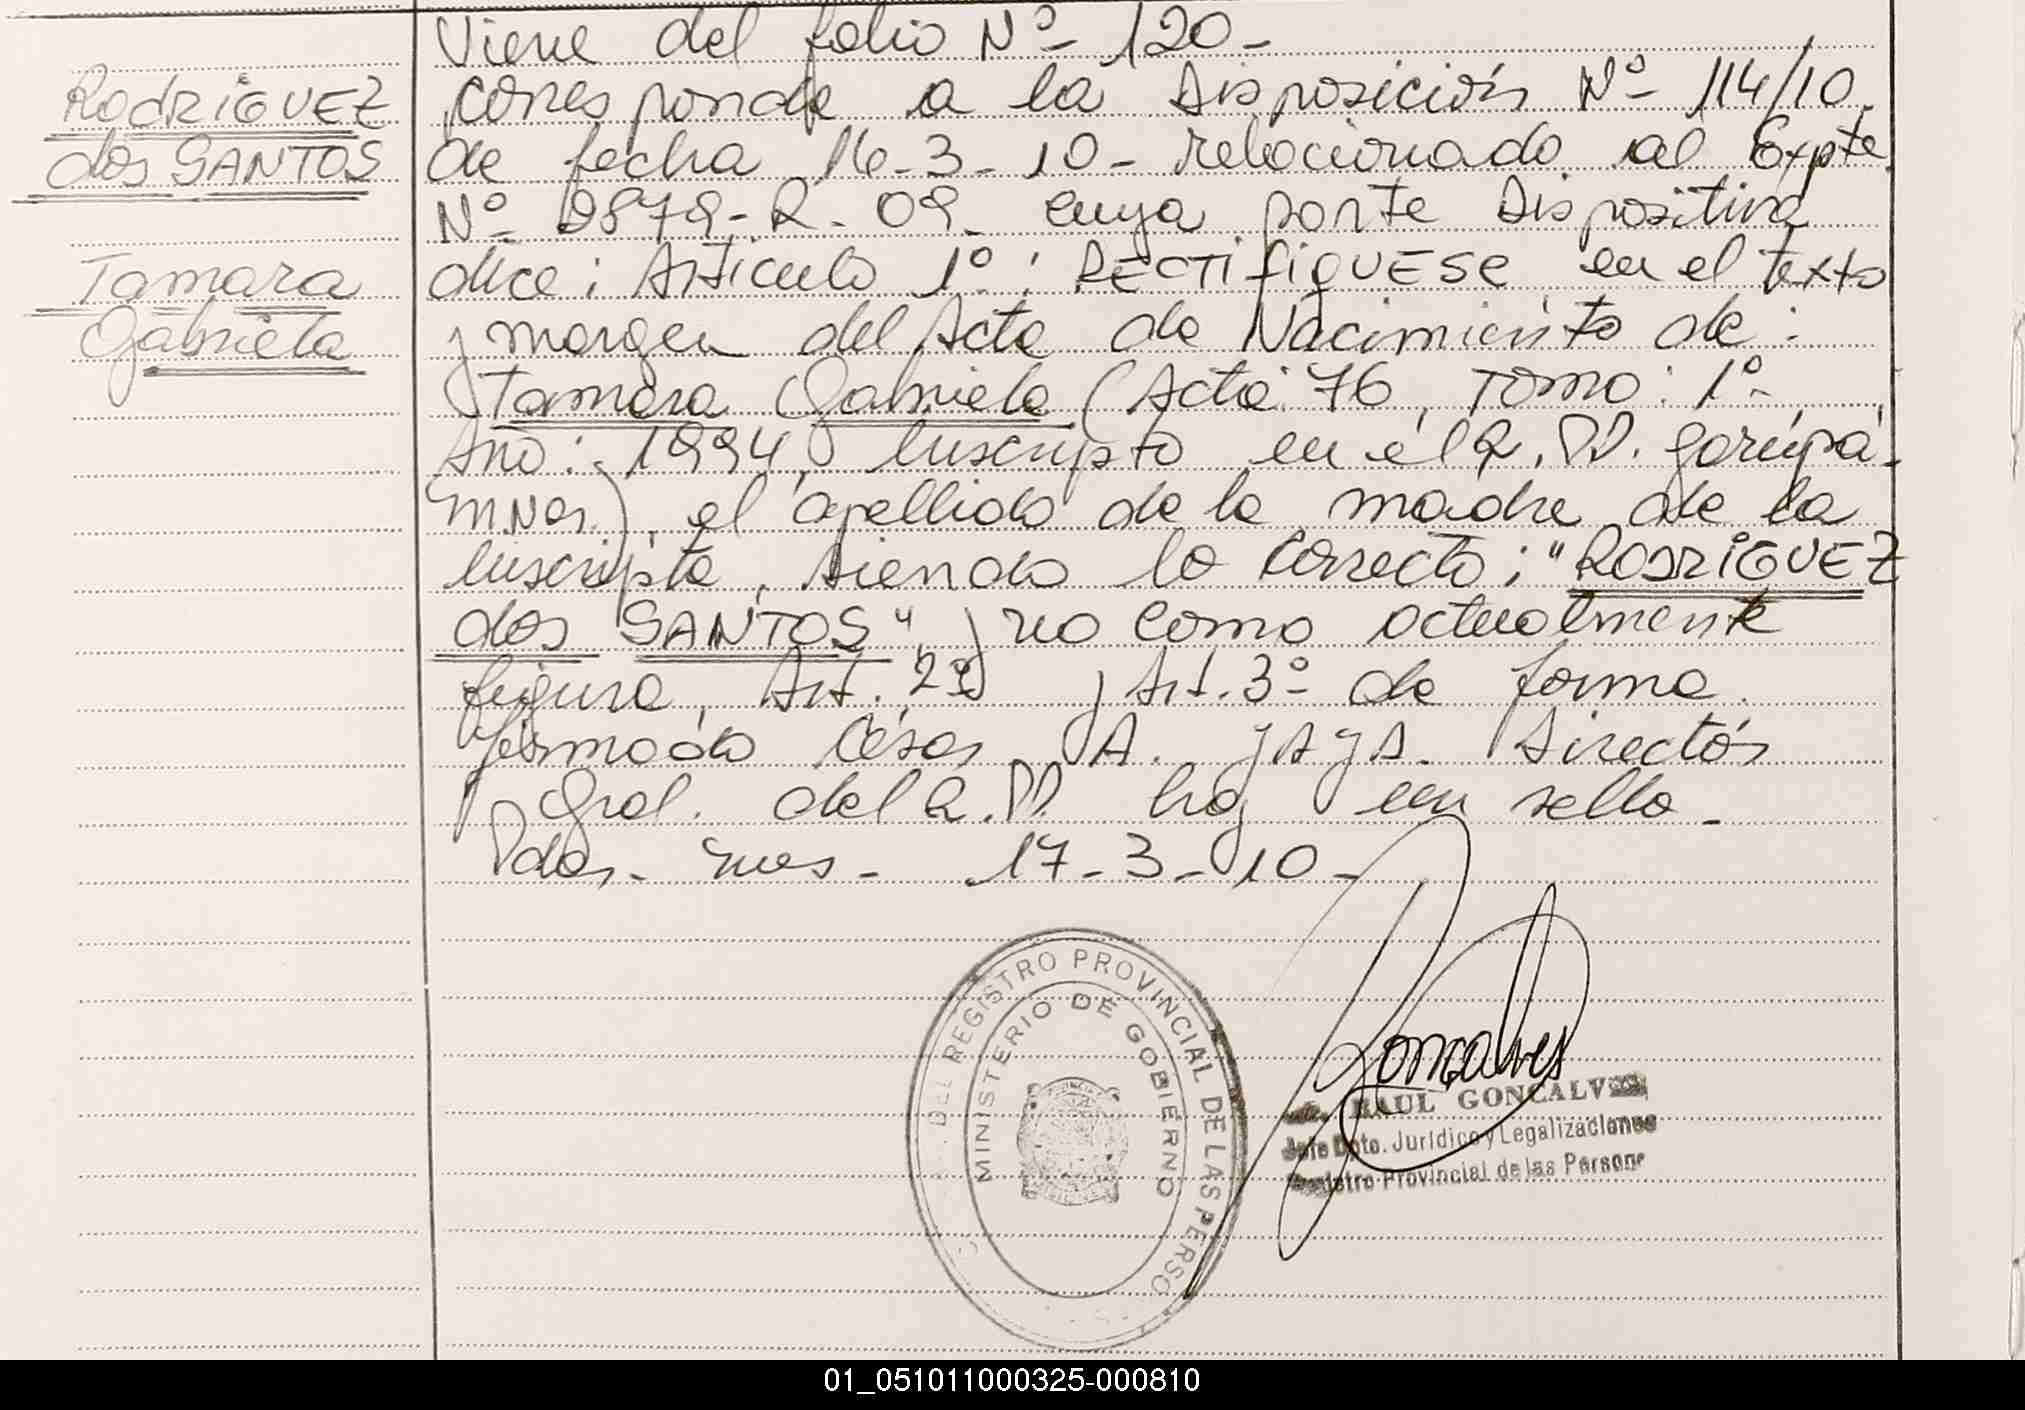 RODRIGUEZ
dos SANTOS
Tamara
Gabriela
Viene del folio Nº 120-
corresponde a la Disposición Nº 114/10.
de fecha 16-3-10- relacionado al Expte
Nº 2879-R-09- cuya parte dispositiva
dice: Articulo 1º: RECTIFIQUESE en el texto
y margen del Acta de Nacimiento de:
Tamara Gabriela (Acta: 76, Tomo: 1º-,
Año: 1994, Inscripto en el R.PP. Garupá-
Mnes.), el apellido de la madre de la
Inscripta, siendo lo correcto: "RODRIGUEZ
dos SANTOS", y no como actualmente
figura, Art. 2º y Art. 3º de forma.
firmado César A. Director
Gral. del R.PP. hay un sello-
Pdas- Mnes- 17-3-10-
DEL REGISTRO PROVINCIAL DE LAS PERSO
MINISTERIO DE GOBIERNO
Goncalves
RAUL GONCALVES
Jefe Dpto. Jurídico y Legalizaciones
Registro Provincial de las Person
01_051011000325-000810